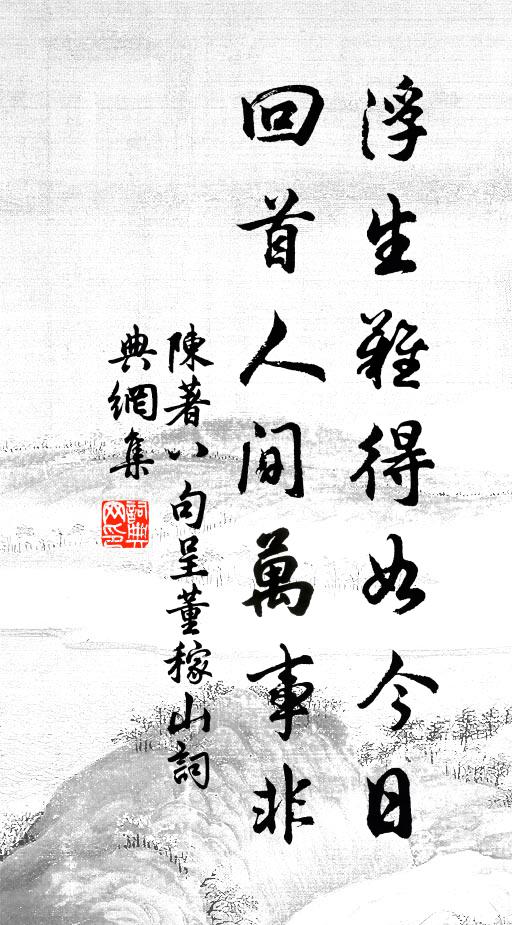 浮生難得如今日
回首人間萬事非
陳著八句呈董稼山詞
典網集
詞典
网印